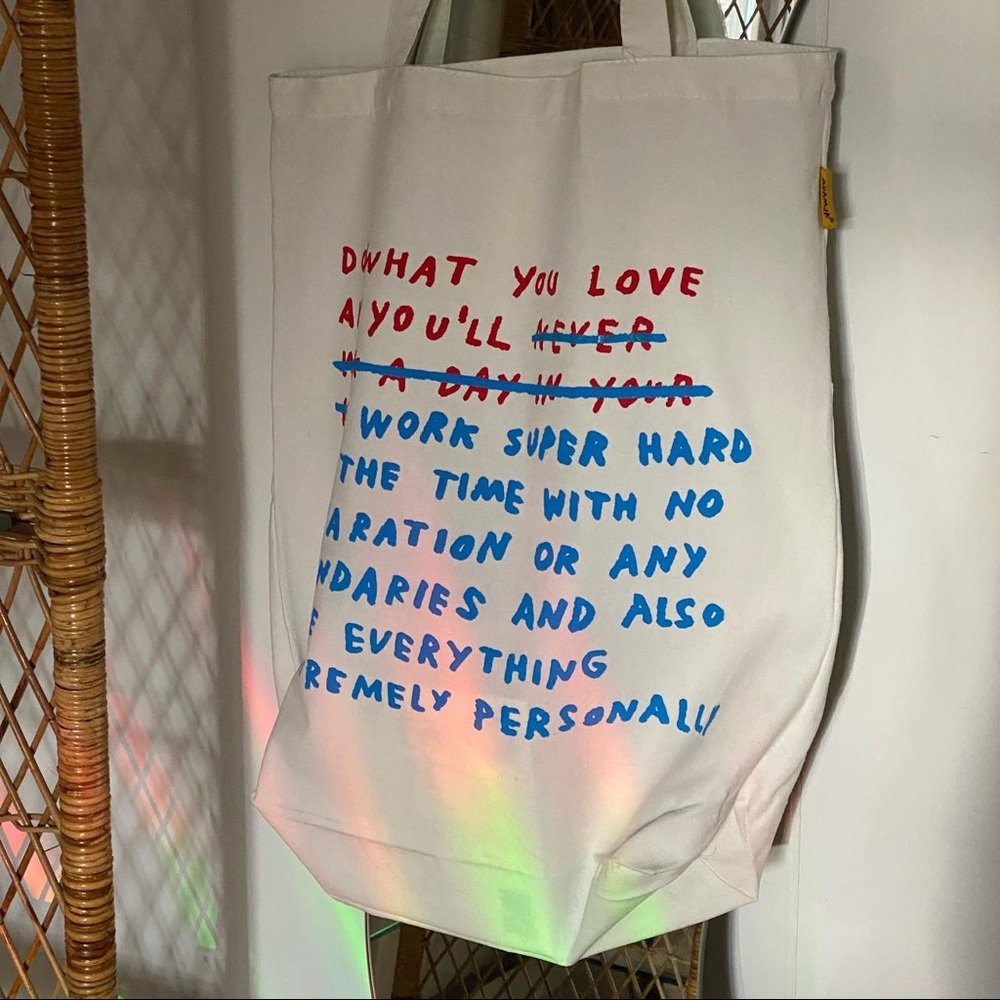 DO WHAT YOU LOVE
YOU'LL NEVER
A DAY IN YOUR
WORK SUPER HARD
THE TIME WITH NO
ARATION OR ANY
NDARIES AND ALSO
E EVERYTHING
REMELY PERSONALLY